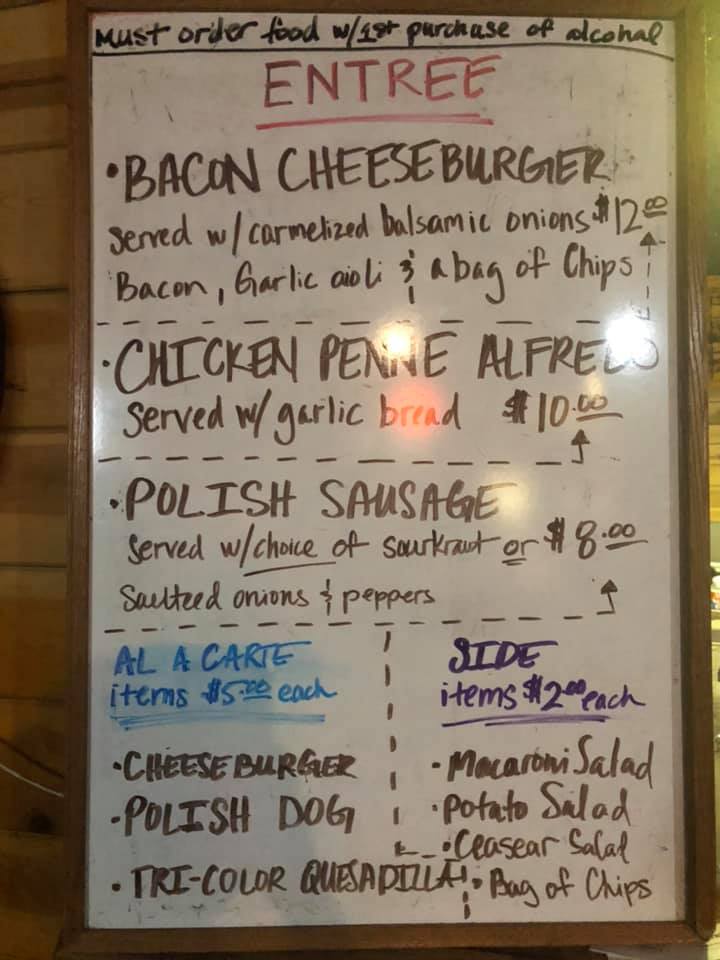 Must order food w/1st purchase of alcohal
ENTREE
• BACON CHEESEBURGER
Served w/carmelized balsamic onions $12.00
Bacon, Garlic aioli & a bag of Chips
• CHICKEN PENNE ALFREDO
Served w/garlic bread $10.00
• POLISH SAUSAGE
Served w/choice of sourkraut or $8.00
Saulteed onions & peppers
AL A CARTE
items $5.00 each
• CHEESEBURGER
• POLISH DOG
• TRI-COLOR QUESADILLA
SIDE
items $2.00 each
• Macaroni Salad
• Potato Salad
• Ceasear Salad
• Bag of Chips